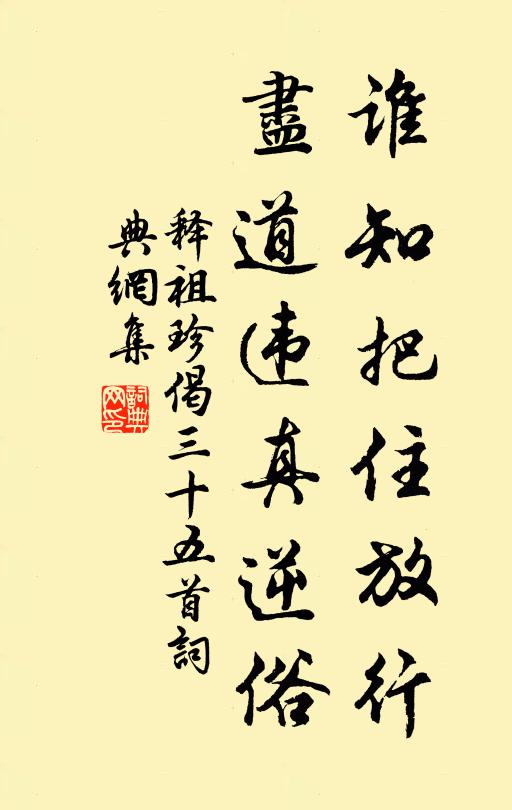 谁知把住放行
盡道违真逆俗
释祖珍偈三十五首詞
典網集
詞典
网印